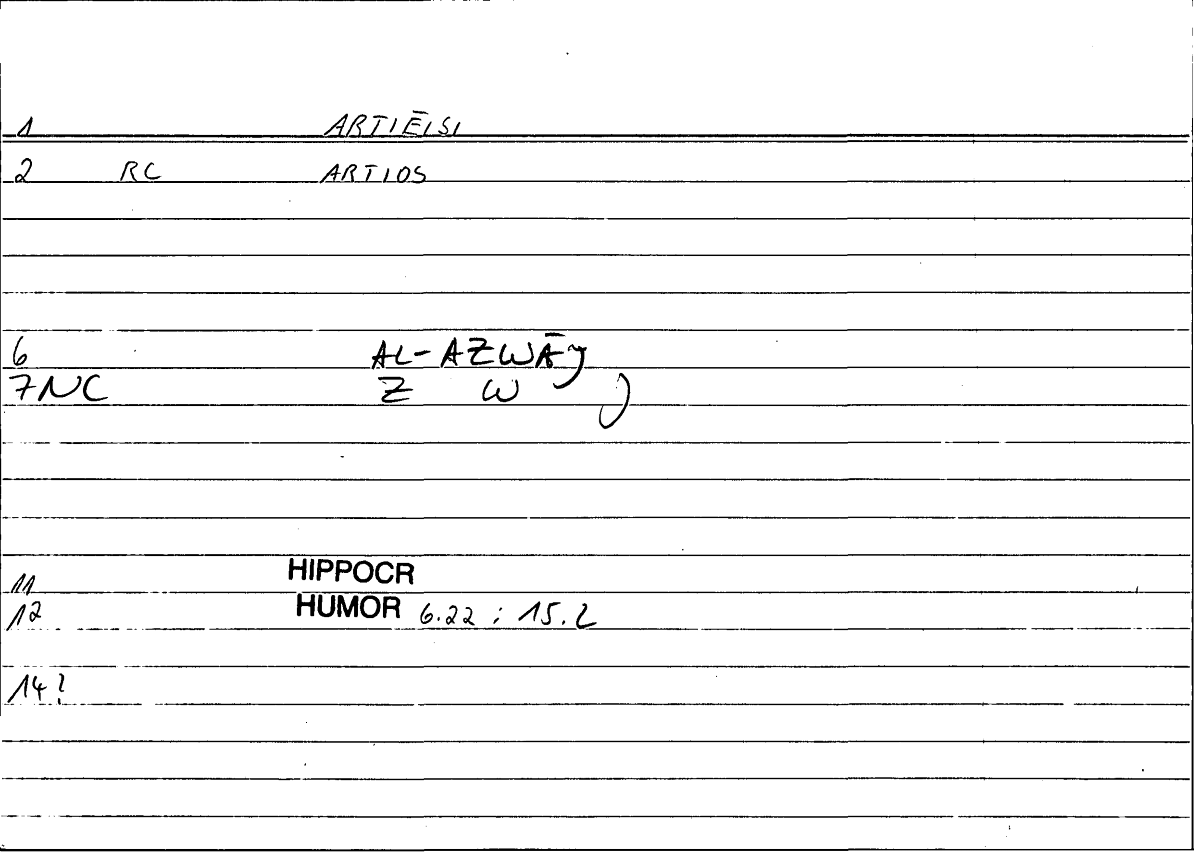 1 ARTIĒISI
2 RC ARTIOS
6 AL-AZWĀJ
7NC Z W J
11 HIPPOCR
12 HUMOR 6.22 : 15.2
14?